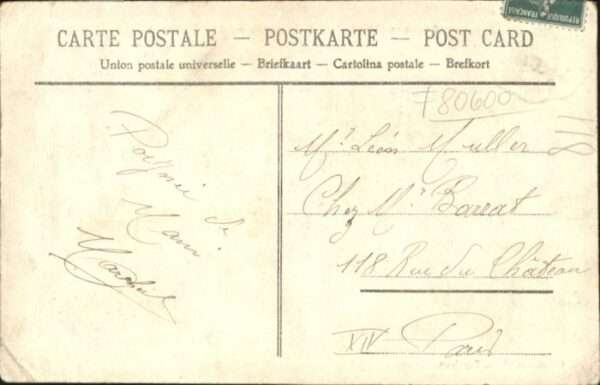 CARTE POSTALE — POSTKARTE — POST CARD
Union postale universelle — Briefkaart — Cartolina postale — Brefkort
REPUBLIQUE FRANÇAISE
F80600
Poignée de
Main
Marchal
Mr Léon Muller
Chez Mr Barrat
118 Rue du Château
XIV Paris